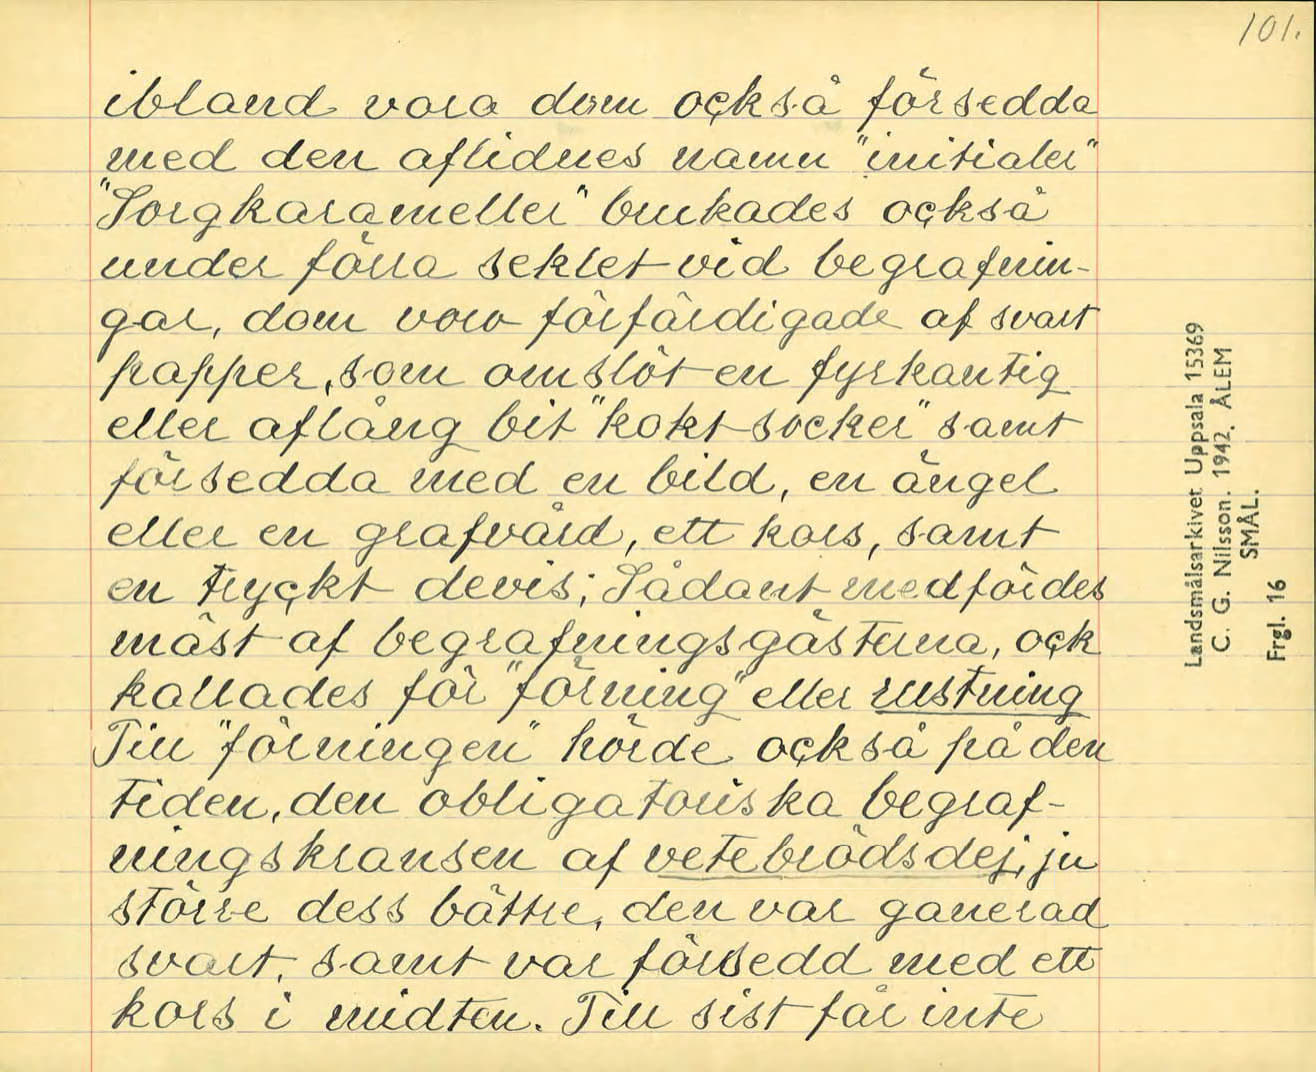 101.
ibland voro dom oçkså försedda
med den aflidnes namn "initialer"
"Sorgkarameller" brukades oçkså
under förra seklet vid begrafnin-
gar, dom voro förfärdigade af svart
papper, som omslöt en fyrkantig
eller aflång bit "kokt socker" samt
försedda med en bild, en ängel
eller en grafvård, ett kors, samt
en tryçkt devis; Sådant medfördes
mäst af begrafningsgästerna, oçk
kallades för "förning" eller rustning
Till "förningen" hörde oçkså på den
tiden, den obligatoriska begraf-
ningskransen af vetebrödsdej, ju
större dess bättre, den var garnerad
svart, samt var försedd med ett
kors i midten. Till sist får inte
Landsmålsarkivet Uppsala 15369
C. G. Nilsson. 1942. ÅLEM
SMÅL.
Frgl. 16